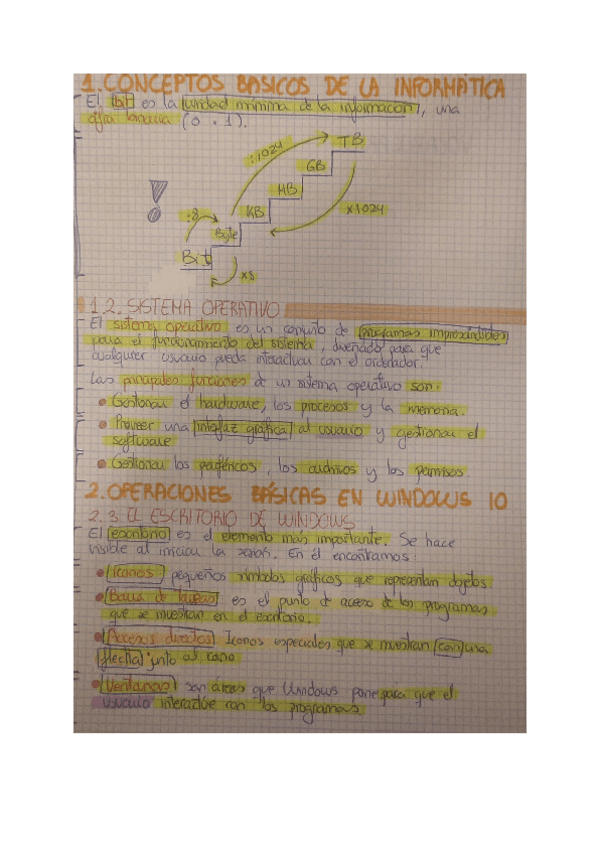 1. CONCEPTOS BÁSICOS DE LA INFORMÁTICA
El bit es la unidad mínima de la información, una
cifra binaria (0 . 1).
TB
:1024
GB
MB
x1024
:8
KB
Byte
Bit
x8
1.2. SISTEMA OPERATIVO
El sistema operativo es un conjunto de programas imprescindibles
para el funcionamiento del sistema, diseñado para que
cualquier usuario pueda interactuar con el ordenador.
Las principales funciones de un sistema operativo son:
• Gestionar el hardware, los procesos y la memoria.
• Proveer una interfaz gráfica al usuario y gestionar el
software
• Gestionar los periféricos, los archivos y los permisos.
2. OPERACIONES BÁSICAS EN WINDOWS 10
2.3 EL ESCRITORIO DE WINDOWS
El escritorio es el elemento más importante. Se hace
visible al iniciar la sesión. En él encontramos:
• Iconos pequeños símbolos gráficos que representan objetos
• Barra de tareas: es el punto de acceso de los programas
que se muestran en el escritorio.
• Accesos directos Iconos especiales que se muestran con una
flecha junto al
• Ventanas son áreas que Windows pone para que el
usuario interactúe con los programas.